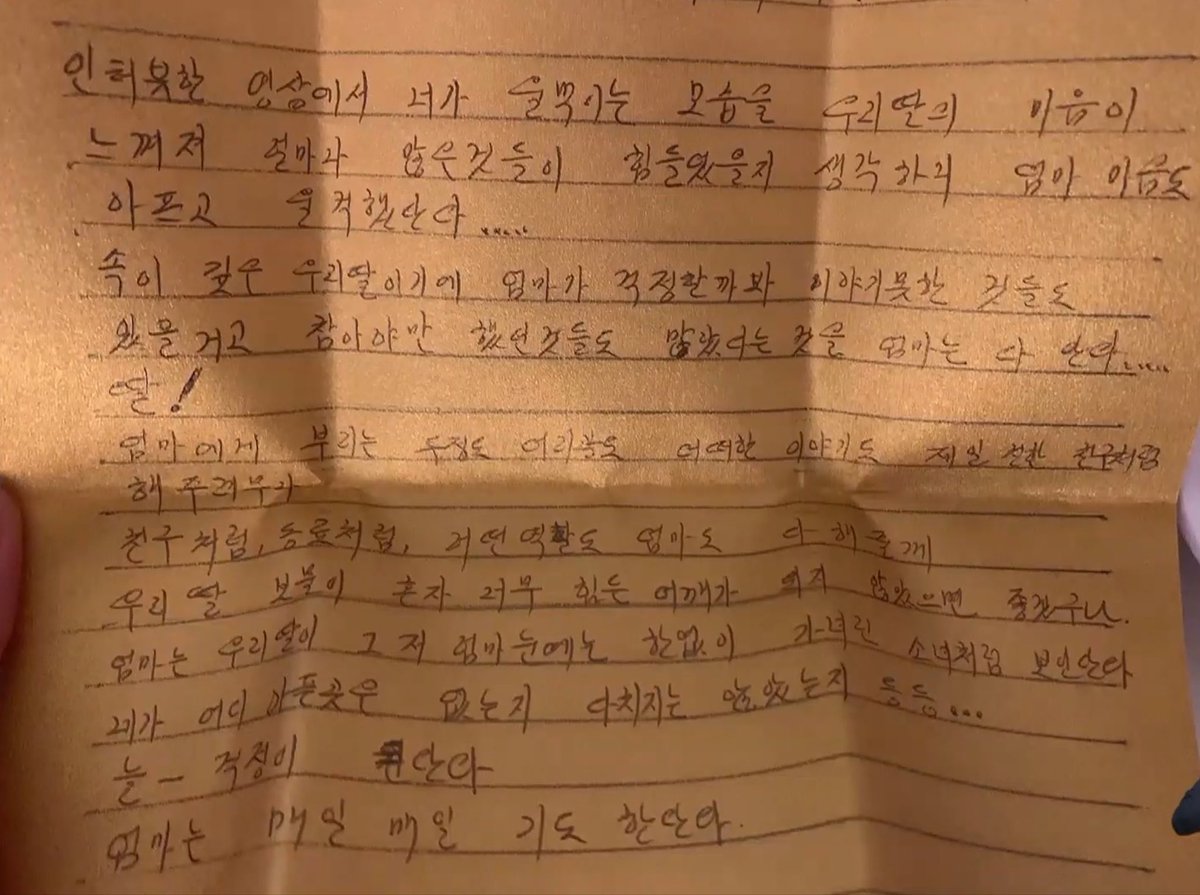 인터뷰한 영상에서 너가 울먹이는 모습을 우리딸의 마음이
느껴져 얼마나 많은것들이 힘들었을지 생각하니 엄마 마음도
아프고 울적했단다.....
속이 깊은 우리딸이기에 엄마가 걱정할까봐 이야기못한 것들도
있을거고 참아야만 했던것들도 많았다는 것을 엄마는 다 안다.....
딸!
엄마에게 부리는 투정도 어리광도 어떠한 이야기도 제일 친한 친구처럼
해 주려무나
친구처럼, 동료처럼, 어떤역할도 엄마도 다해줄께
우리 딸 보물이 혼자 너무 힘든 어깨가 되지 않았으면 좋겠구나.
엄마는 우리딸이 그저 엄마눈에는 한없이 가녀린 소녀처럼 보인단다
네가 어디 아픈곳은 없는지 다치지는 않았는지 등등...
늘- 걱정이 단다
엄마는 매일 매일 기도 한단다.